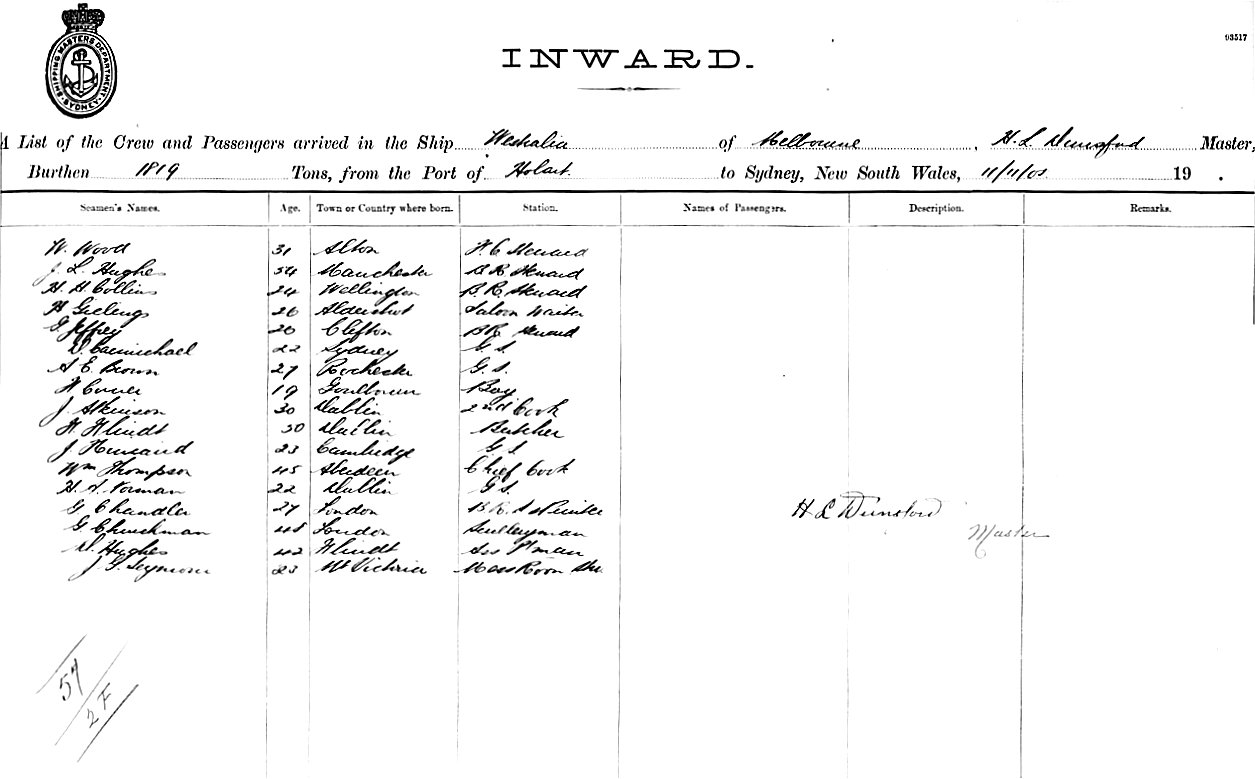 SHIPPING MASTERS DEPARTMENT SYDNEY
93517
INWARD.
A List of the Crew and Passengers arrived in the Ship Westralia of Melbourne, H. L. Dunsford Master,
Burthen 1819 Tons, from the Port of Hobart to Sydney, New South Wales, 11/11/01 19 .
Seamen's Names. Age. Town or Country where born. Station. Names of Passengers. Description. Remarks.
W. Wood 31 Alton F. C. Steward
J. L. Hughes 54 Manchester B. R. Steward
H. H. Collins 24 Wellington B. R. Steward
H Gielings 26 Aldershot Saloon Waiter
G. Jeffrey 20 Clifton BR Steward
D. Carmichael 22 Sydney G. S.
A. E. Brown 27 Rochester G. S.
19 Goulbourn Boy
J. Atkinson 30 Dublin 2nd Cook
H Windt 30 Dublin Butcher
J. 23 Cambridge G S
Wm Thompson 45 Aberdeen Chief Cook
H. A. Norman 22 Dublin GS.
G Chandler 27 London B. R.
H L Dunsford
G. Churchman 45 London Sculleryman
Master
D. Hughes 42 Windt P'man
J. G. Seymour 23 Mt Victoria Mess Room
57
2 F